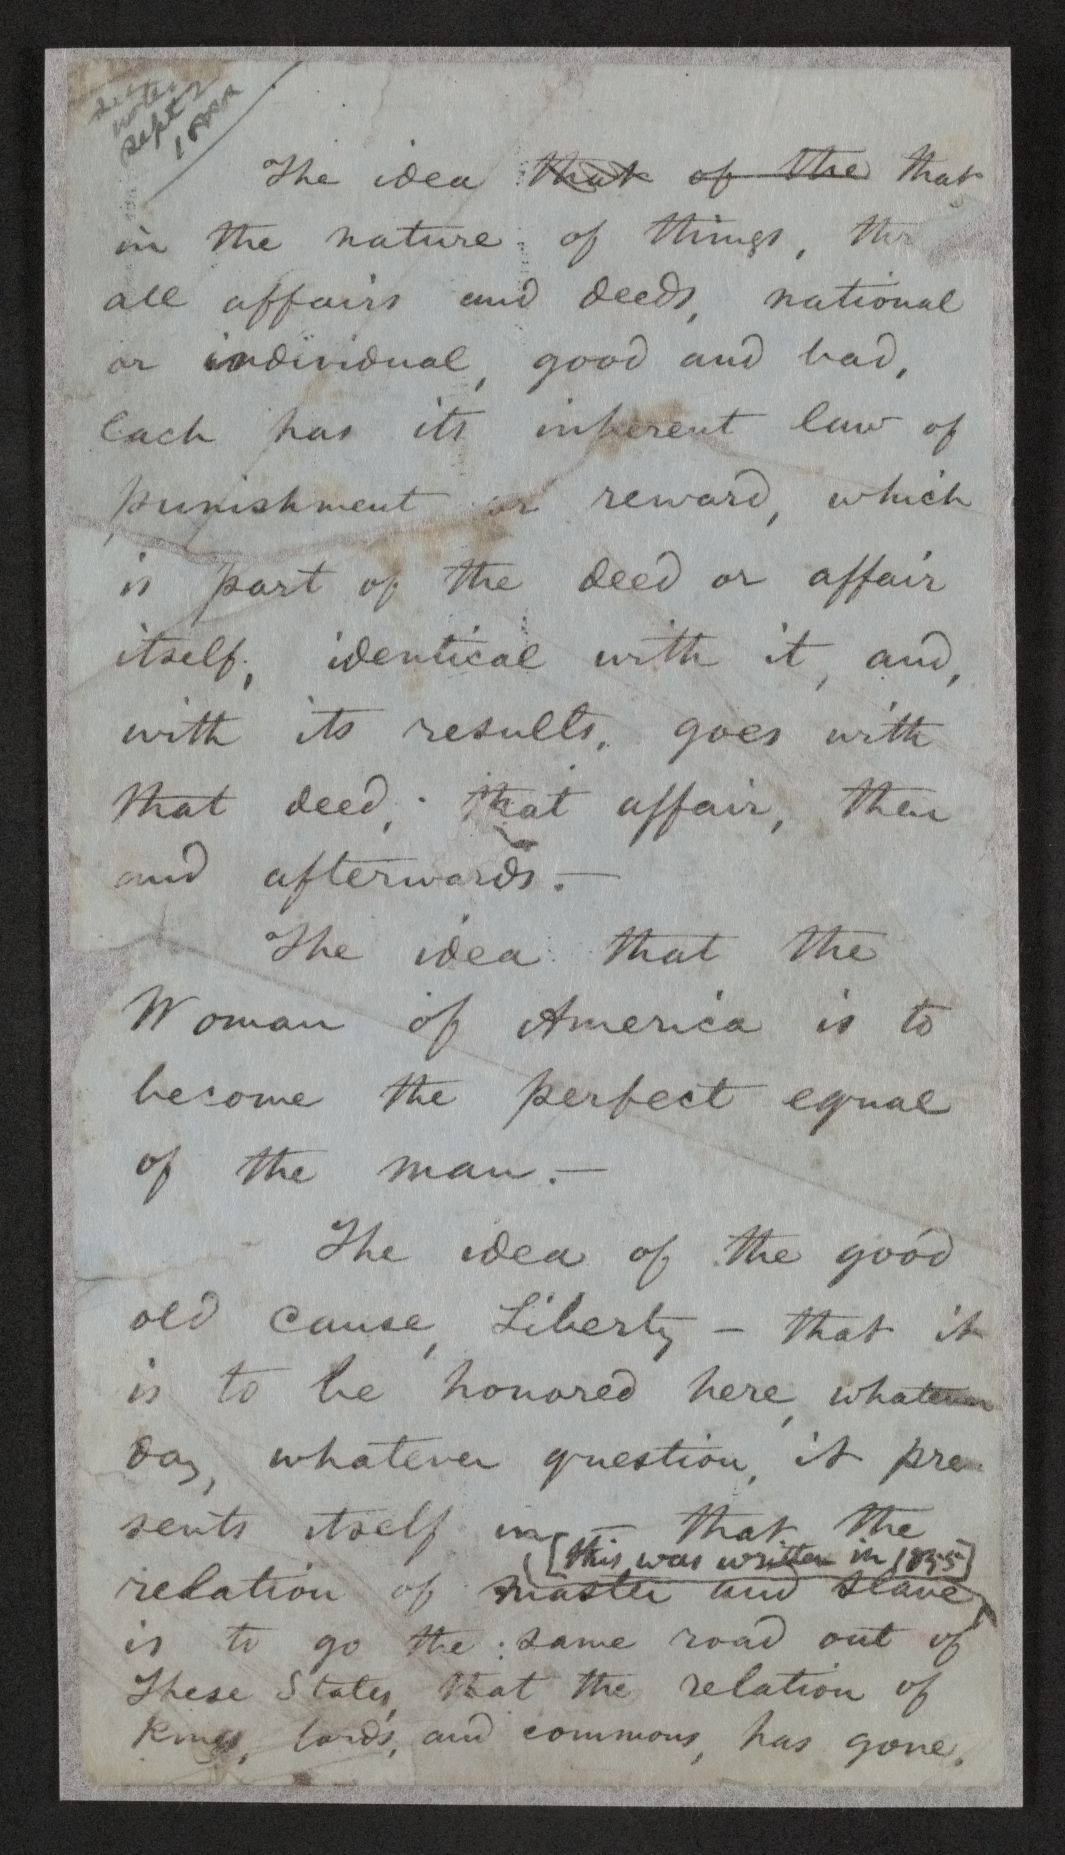 see
notes
Sept 2
1888
The idea that of the that
in the nature of things, thr
all affairs and deeds, national
or individual, good and bad,
each has its inherent law of
punishment or reward, which
is part of the deed or affair
itself, identical with it, and,
with its results, goes with
that deed, that affair, then
and afterwards.—
The idea that the
Woman of America is to
become the perfect equal
of the man.—
The idea of the good
old cause, Liberty — that it
is to be honored here, whatever
day, whatever question, it pre-
sents itself in — that the
[this was written in 1855]
relation of master and slave,
is to go the same road out of
These States, that the relation of
kings, lords, and commons, has gone.